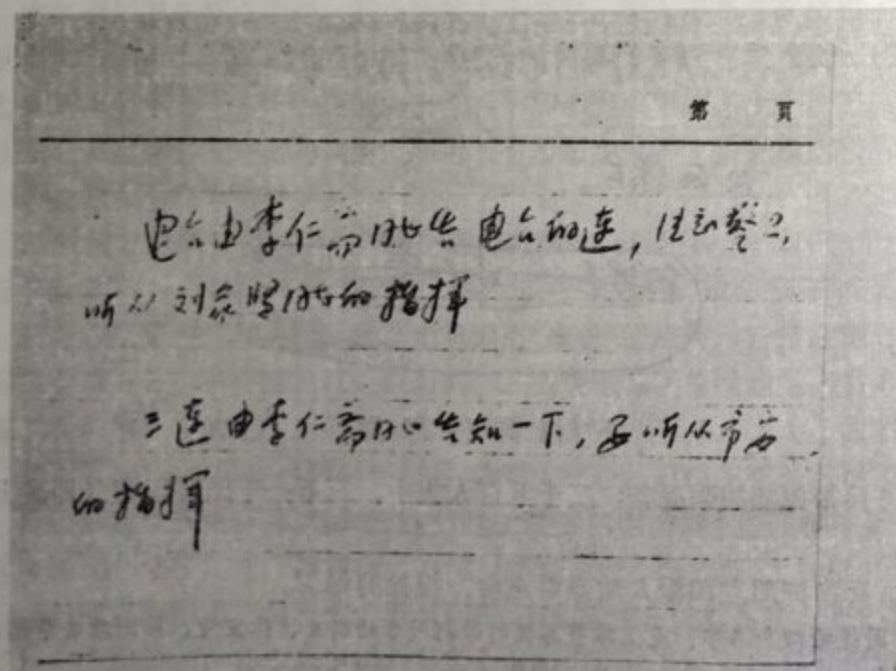 第 页
电台由李仁斋同志告电台的连,
听从刘象贤同志的指挥
三连由李仁斋同志告知一下,要听从市委
的指挥